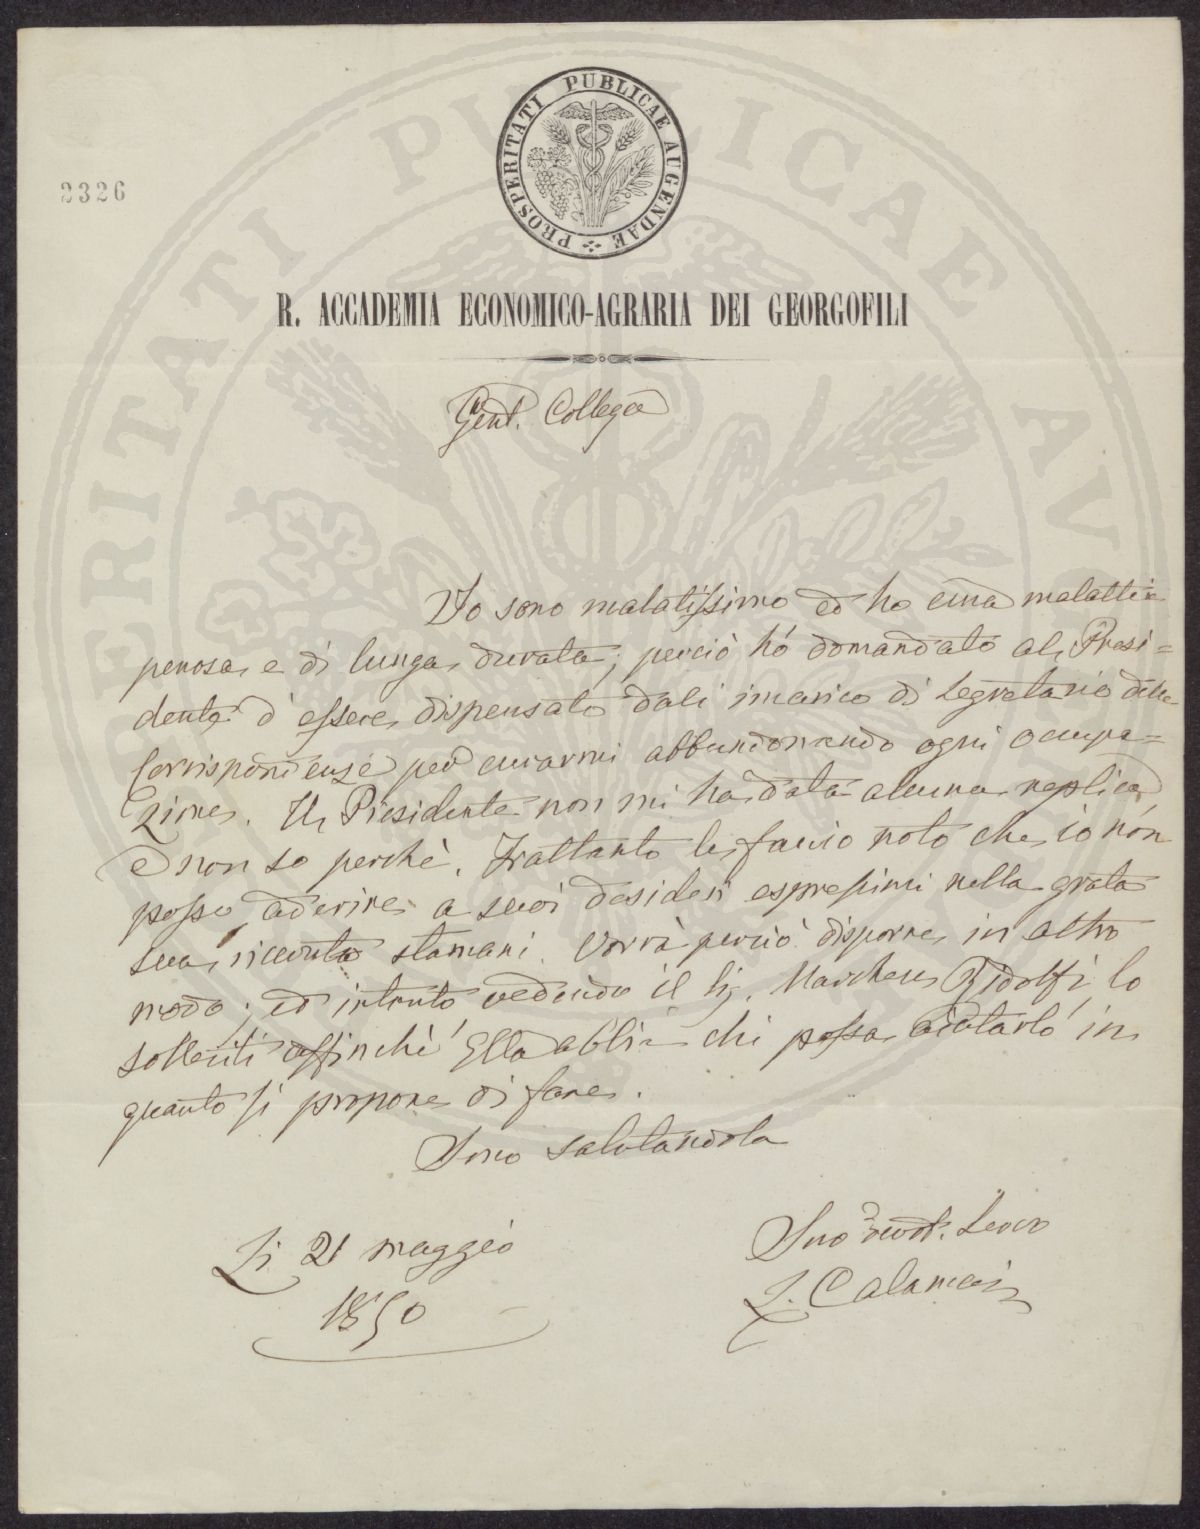 PROSPERITATI PUBLICAE AUGENDAE
2326
R. ACCADEMIA ECONOMICO-AGRARIA DEI GEORGOFILI
Gent. Collega
Io sono malatissimo ed ho una malattia
penosa e di lunga durata; perciò hó domandato al Presi=
dente d'essere dispensato dall incarico di Segretario delle
Corrispondenze per curarmi abbandonando ogni occupa=
zione. Il Presidente non mi ha data alcuna replica
e non so perchè. Frattanto le faccio noto che io non
posso aderire a suoi desideri espressimi nella grata
sua ricevuta stamani. Vorrà perciò disporre in altro
modo; ed intanto vedendo il Sig. Marchese Ridolfi lo
solleciti affinchè Ella abbia chi possa aiutarlo in
quanto si propone di fare.
Sono salutandola
Li 21 maggio
1850
Suo devot. Servo
L. Calamai